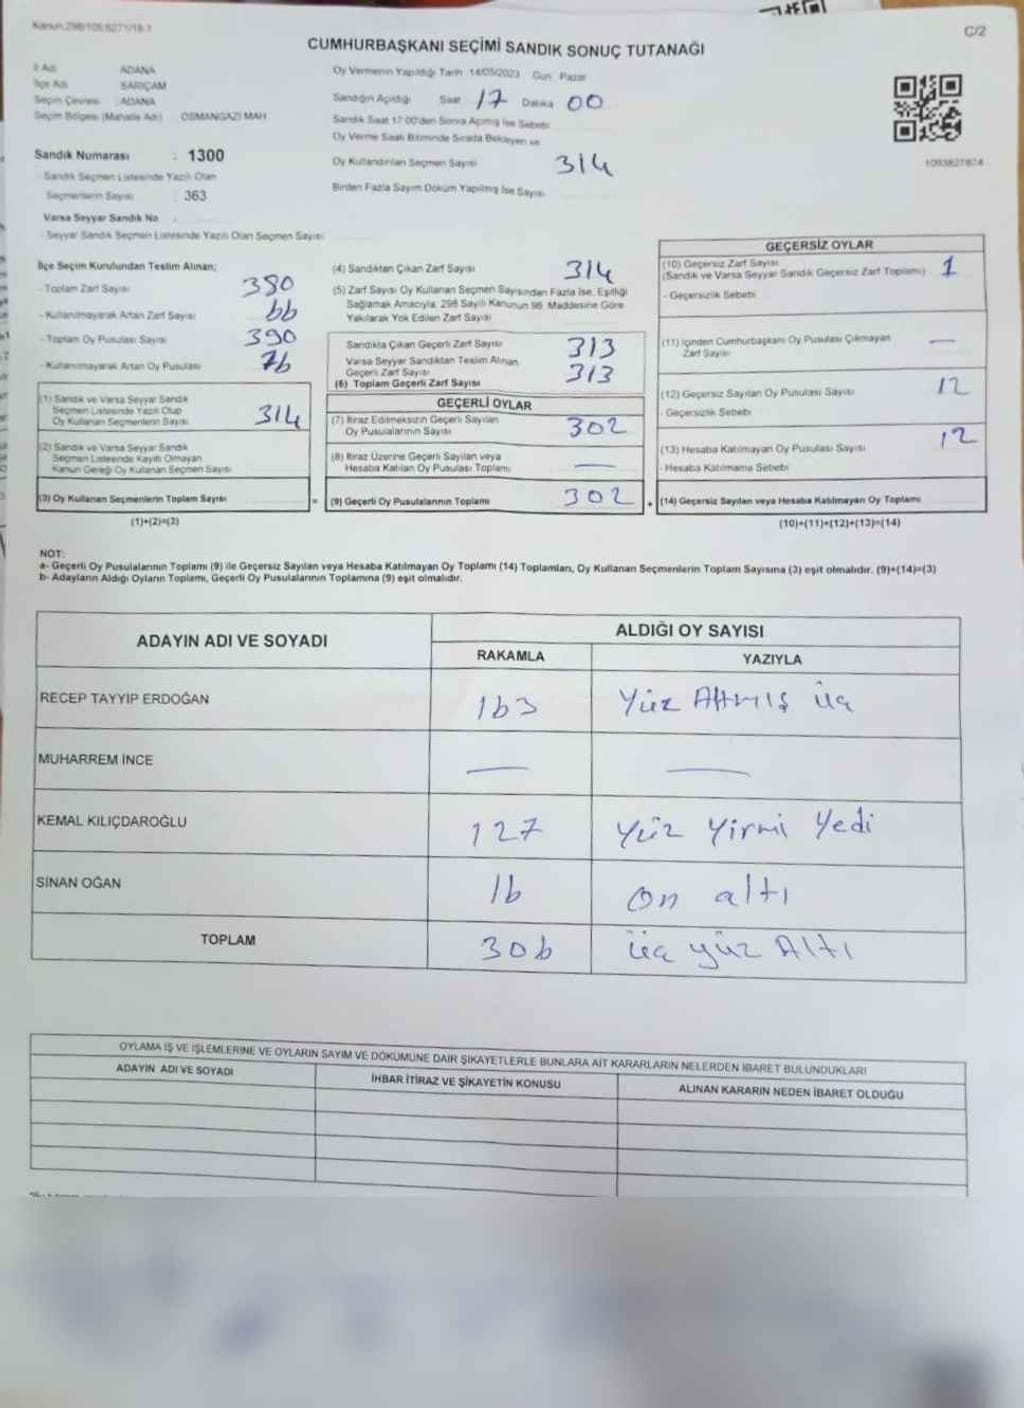 Kanun.298/105,6271/18-1
C/2
CUMHURBAŞKANI SEÇİMİ SANDIK SONUÇ TUTANAĞI
İl Adı ADANA
İlçe Adı SARIÇAM
Seçim Çevresi : ADANA
Seçim Bölgesi (Mahalle Adı) OSMANGAZİ MAH.
Sandık Numarası : 1300
Sandık Seçmen Listesinde Yazılı Olan
Seçmenlerin Sayısı : 363
Varsa Seyyar Sandık No :
- Seyyar Sandık Seçmen Listesinde Yazılı Olan Seçmen Sayısı
Oy Vermenin Yapıldığı Tarih 14/05/2023 Gün: Pazar
Sandığın Açıldığı Saat 17 Dakika 00
Sandık Saat 17.00'den Sonra Açılmış İse Sebebi
Oy Verme Saati Bitiminde Sırada Bekleyen ve
Oy Kullandırılan Seçmen Sayısı 314
Birden Fazla Sayım Döküm Yapılmış İse Sayısı
1093827874
İlçe Seçim Kurulundan Teslim Alınan;
- Toplam Zarf Sayısı 380
- Kullanılmayarak Artan Zarf Sayısı 66
- Toplam Oy Pusulası Sayısı 390
- Kullanılmayarak Artan Oy Pusulası 76
(1) Sandık ve Varsa Seyyar Sandık
Seçmen Listesinde Yazılı Olup
Oy Kullanan Seçmenlerin Sayısı 314
(2) Sandık ve Varsa Seyyar Sandık
Seçmen Listesinde Kayıtlı Olmayan
Kanun Gereği Oy Kullanan Seçmen Sayısı
(3) Oy Kullanan Seçmenlerin Toplam Sayısı =
(1)+(2)=(3)
(4) Sandıktan Çıkan Zarf Sayısı 314
(5) Zarf Sayısı Oy Kullanan Seçmen Sayısından Fazla İse, Eşitliği
Sağlamak Amacıyla, 298 Sayılı Kanunun 98. Maddesine Göre
Yakılarak Yok Edilen Zarf Sayısı
Sandıkta Çıkan Geçerli Zarf Sayısı 313
Varsa Seyyar Sandıktan Teslim Alınan
Geçerli Zarf Sayısı
(6) Toplam Geçerli Zarf Sayısı 313
GEÇERLİ OYLAR
(7) İtiraz Edilmeksizin Geçerli Sayılan
Oy Pusulalarının Sayısı 302
(8) İtiraz Üzerine Geçerli Sayılan veya
Hesaba Katılan Oy Pusulası Toplamı —
(9) Geçerli Oy Pusulalarının Toplamı 302 +
GEÇERSİZ OYLAR
(10) Geçersiz Zarf Sayısı
(Sandık ve Varsa Seyyar Sandık Geçersiz Zarf Toplamı) 1
- Geçersizlik Sebebi
(11) İçinden Cumhurbaşkanı Oy Pusulası Çıkmayan
Zarf Sayısı —
(12) Geçersiz Sayılan Oy Pusulası Sayısı 12
- Geçersizlik Sebebi
(13) Hesaba Katılmayan Oy Pusulası Sayısı 12
- Hesaba Katılmama Sebebi
(14) Geçersiz Sayılan veya Hesaba Katılmayan Oy Toplamı
(10)+(11)+(12)+(13)=(14)
NOT:
a- Geçerli Oy Pusulalarının Toplamı (9) ile Geçersiz Sayılan veya Hesaba Katılmayan Oy Toplamı (14) Toplamları, Oy Kullanan Seçmenlerin Toplam Sayısına (3) eşit olmalıdır. (9)+(14)=(3)
b- Adayların Aldığı Oyların Toplamı, Geçerli Oy Pusulalarının Toplamına (9) eşit olmalıdır.
ADAYIN ADI VE SOYADI ALDIĞI OY SAYISI
RAKAMLA YAZIYLA
RECEP TAYYİP ERDOĞAN 163 Yüz Altmış üç
MUHARREM İNCE — —
KEMAL KILIÇDAROĞLU 127 Yüz Yirmi Yedi
SİNAN OĞAN 16 On altı
TOPLAM 306 üç yüz Altı
OYLAMA İŞ VE İŞLEMLERİNE VE OYLARIN SAYIM VE DÖKÜMÜNE DAİR ŞİKAYETLERLE BUNLARA AİT KARARLARIN NELERDEN İBARET BULUNDUKLARI
ADAYIN ADI VE SOYADI İHBAR İTİRAZ VE ŞİKAYETİN KONUSU ALINAN KARARIN NEDEN İBARET OLDUĞU